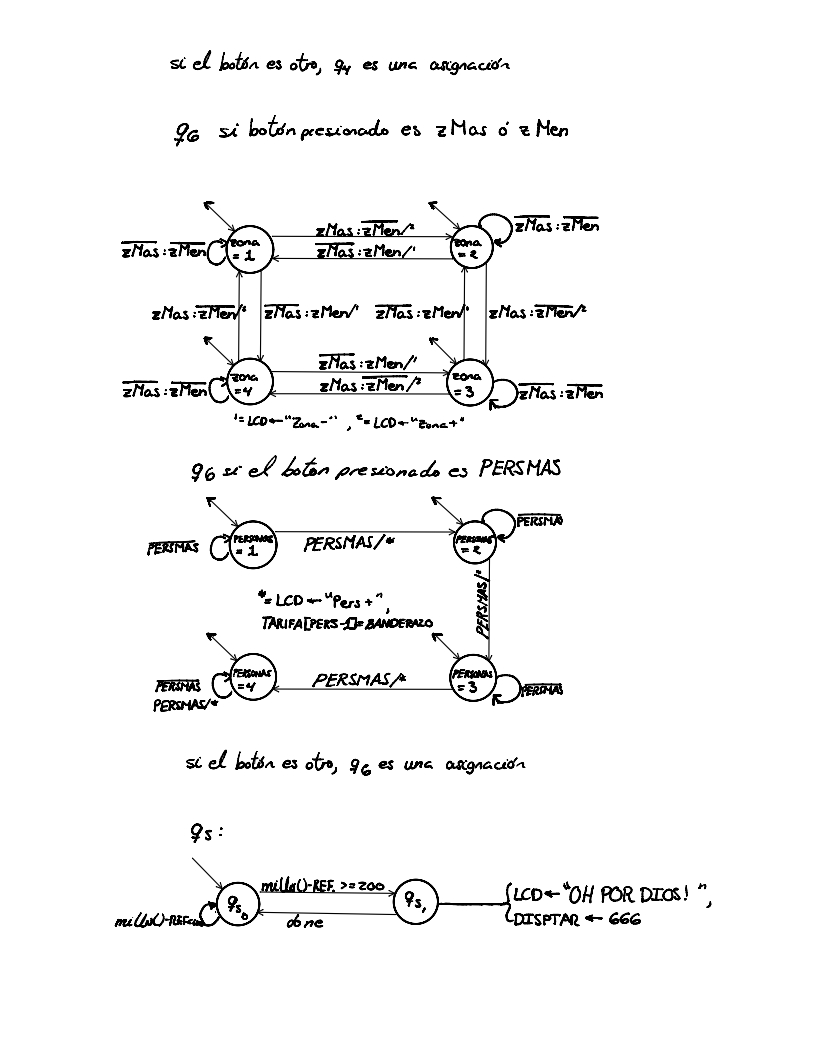 si el botón es otro, q4 es una asignación
q6 si botón presionado es zMas ó zMen
zMas:zMen/²
zMas:zMen
zona = 1
zMas:zMen
zMas:zMen/¹
zona = 2
zMas:zMen/²
zMas:zMen/¹
zMas:zMen/¹
zMas:zMen/²
zona = 4
zMas:zMen
zMas:zMen/¹
zMas:zMen/²
zona = 3
zMas:zMen
¹= LCD ← "Zona-" , ²= LCD ← "Zona+"
q6 si el boton presionado es PERSMAS
PERSMAS
PERSONAS = 1
PERSMAS/*
PERSONAS = 2
PERSMA
*= LCD ← "Pers+",
TARIFA[PERS-1]=BANDERAZO
PERSMAS/*
PERSMAS
PERSMAS/*
PERSONAS = 4
PERSMAS/*
PERSONAS = 3
PERSMAS
si el botón es otro, q6 es una asignación
q5:
millis()-REF. >= 200
q5₀
q5₁
LCD ← "OH POR DIOS!",
millis()-REF
done
DISPTAR ← 666